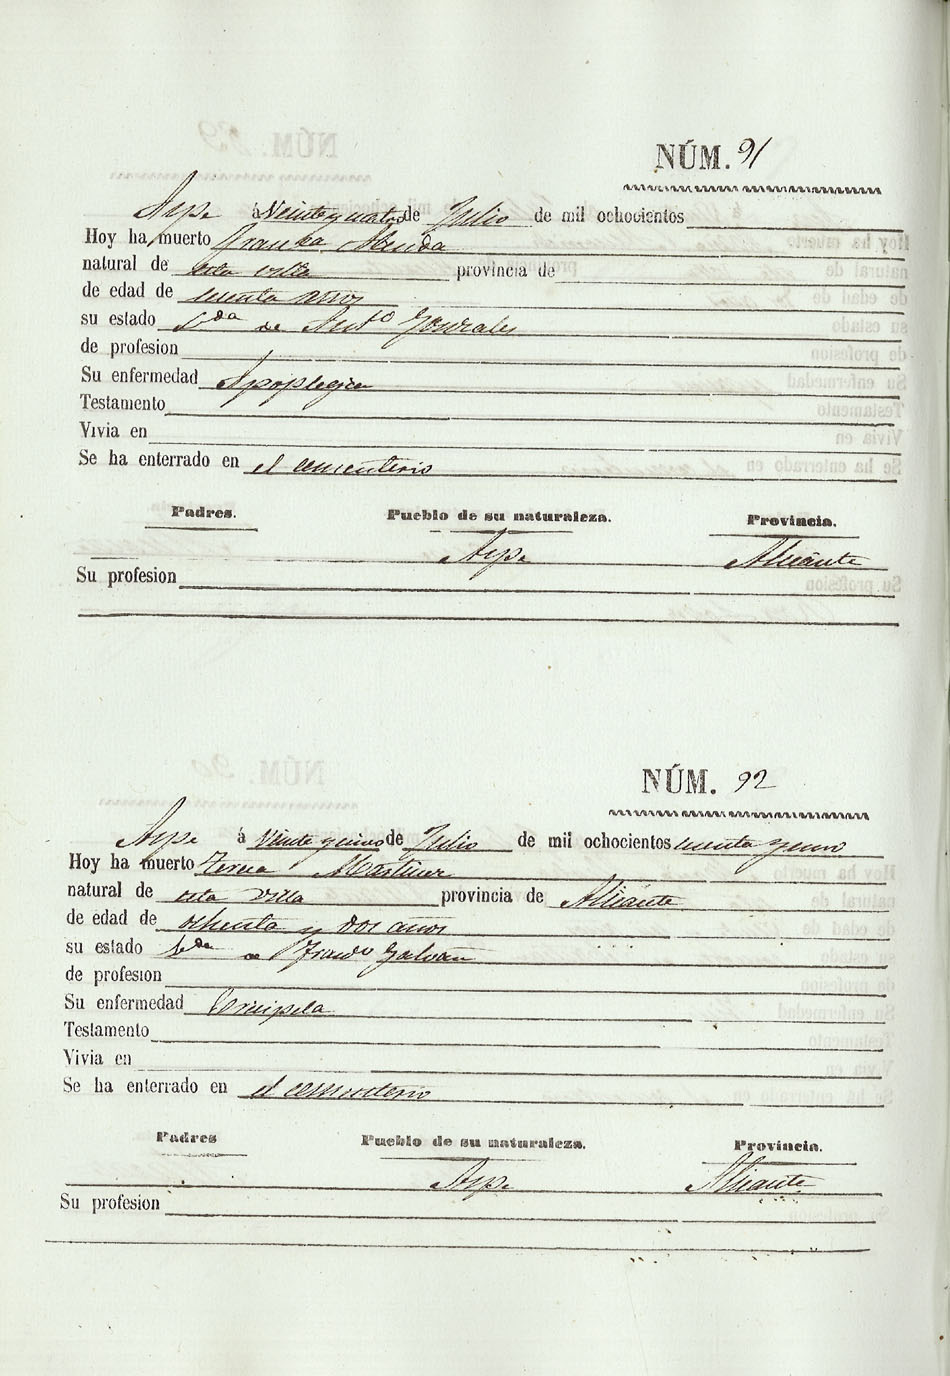 NÚM. 91
Aspe á Veinte y cuatro de Julio de mil ochocientos
Hoy ha muerto
natural de esta villa provincia de
de edad de años
su estado de Anto Gonzales
de profesion
Su enfermedad Apoplegia
Testamento
Vivia en
Se ha enterrado en el cementerio
Padres. Pueblo de su naturaleza. Provincia.
Aspe Alicante
Su profesion
NÚM. 92
Aspe á Veinte y cinco de Julio de mil ochocientos
Hoy ha muerto Teresa Martinez
natural de esta villa provincia de Alicante
de edad de ochenta y dos años
su estado Galvañ
de profesion
Su enfermedad
Testamento
Vivia en
Se ha enterrado en el cementerio
Padres Pueblo de su naturaleza. Provincia.
Aspe Alicante
Su profesion